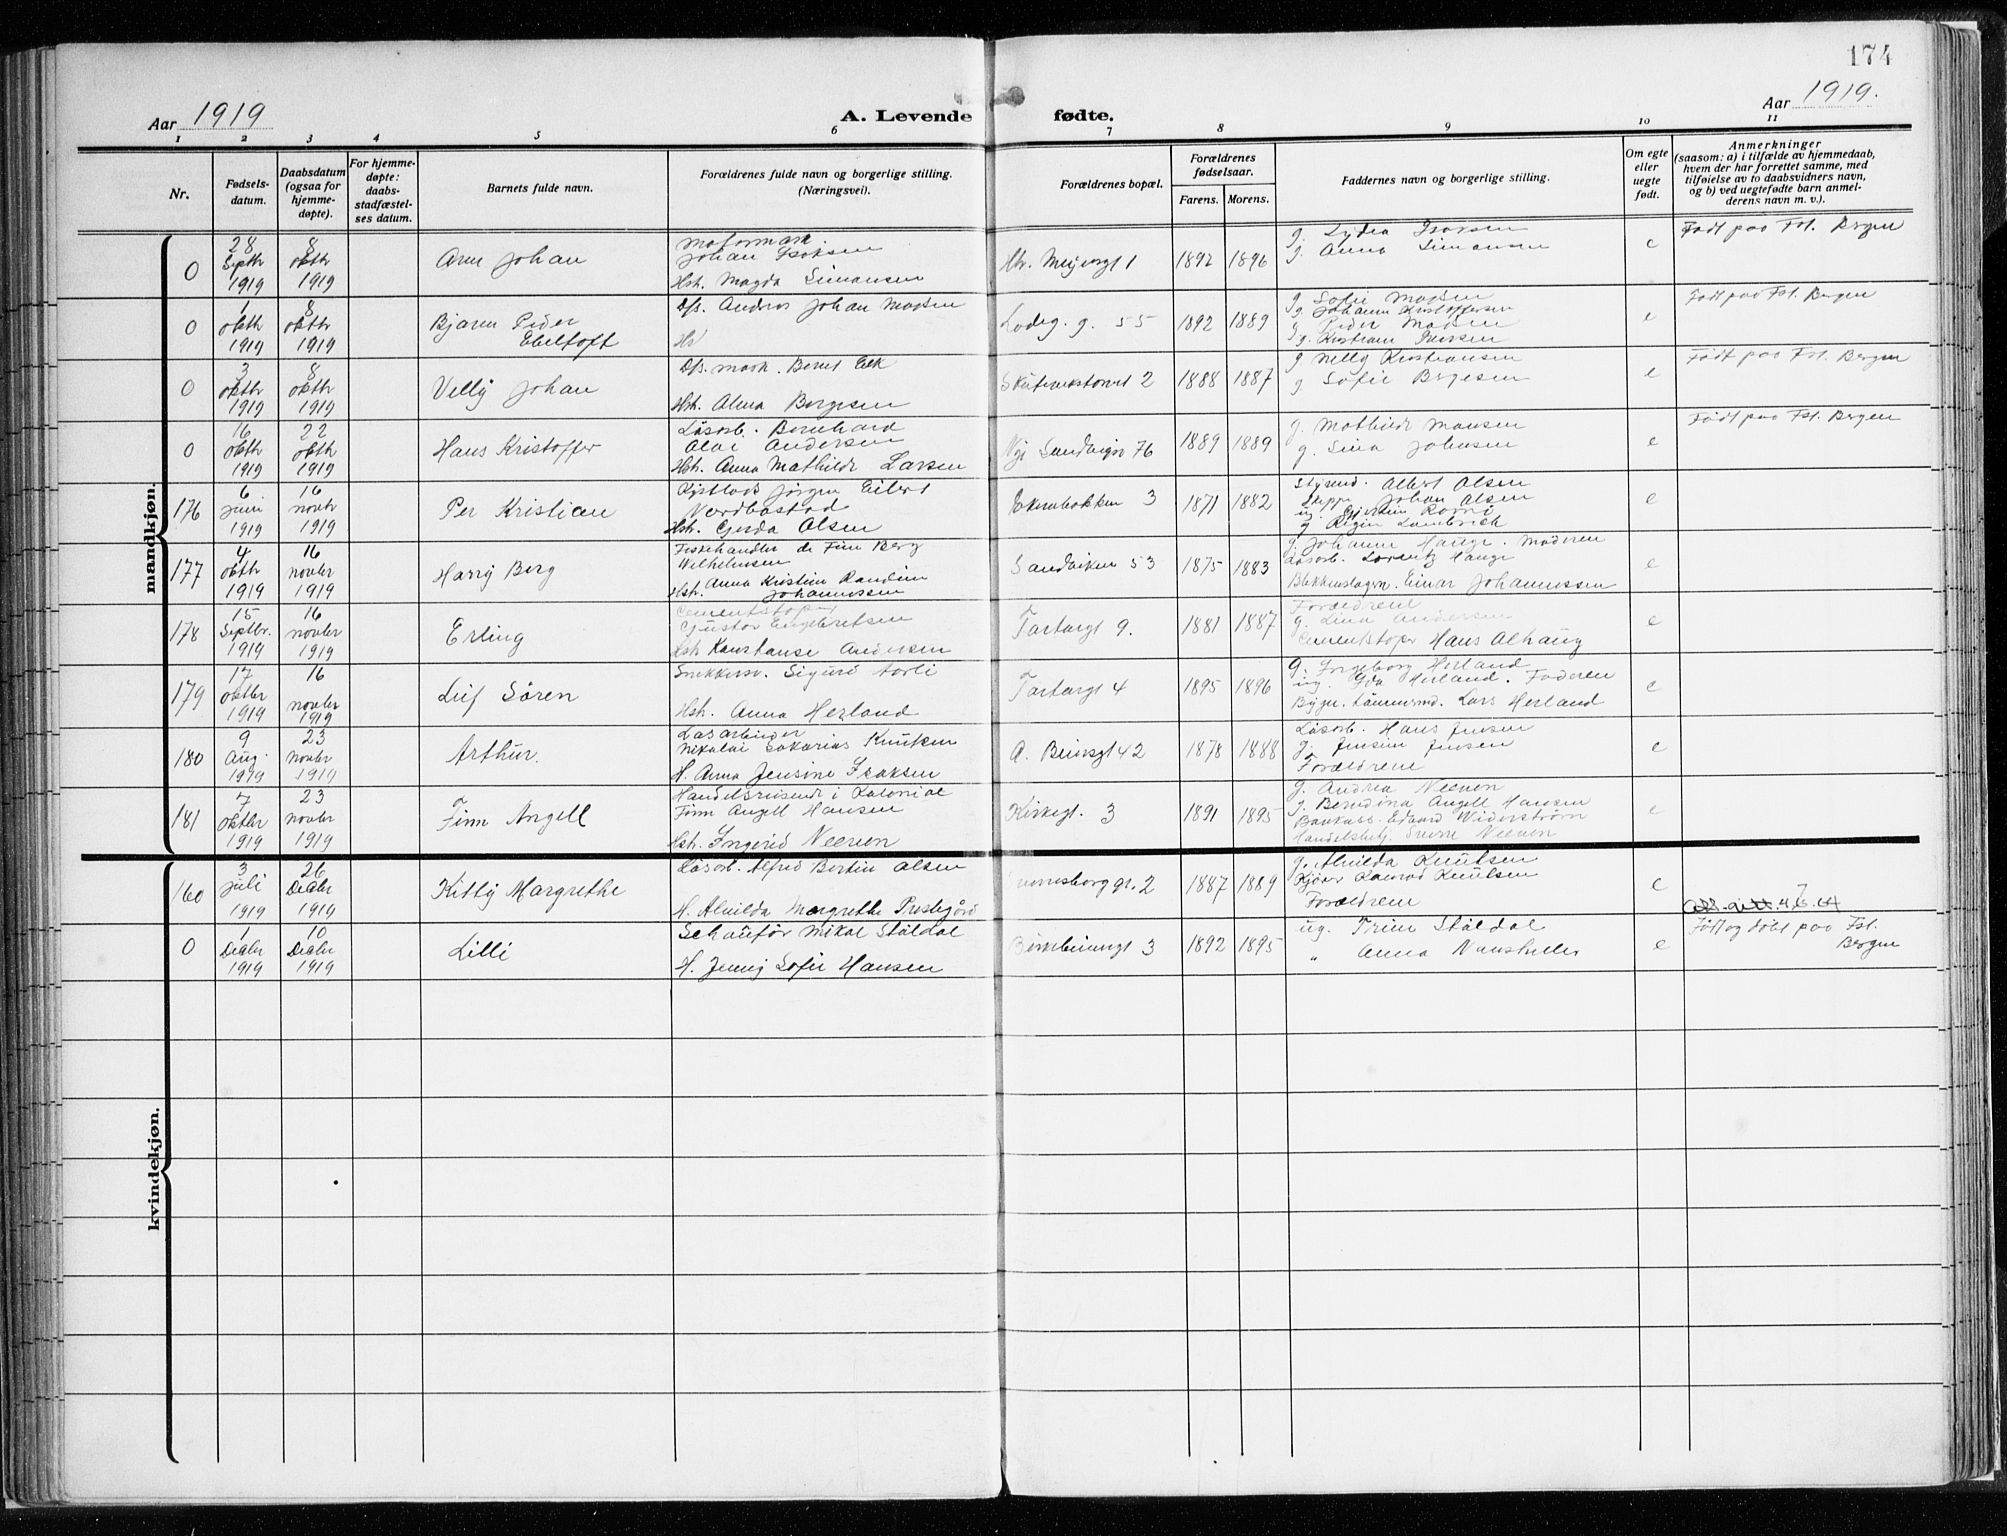 174
Aar 1919
A. Levende fødte.
Aar 1919.
1 2 3 4 5 6 7 8 9 10 11
Nr.
Fødsels-
datum.
Daabsdatum
(ogsaa for
hjemme-
døpte).
For hjemme-
døpte:
daabs-
stadfæstel-
ses datum.
Barnets fulde navn.
Forældrenes fulde navn og borgerlige stilling.
(Næringsvei).
Forældrenes bopæl.
Forældrenes
fødselsaar.
Farens. Morens.
Faddernes navn og borgerlige stilling.
Om egte
eller
uegte
født.
Anmerkninger
(saasom: a) i tilfælde av hjemmedaab,
hvem der har forrettet samme, med
tilføielse av to daabsvidners navn,
og b) ved uegtefødte barn anmel-
derens navn m. v.).
mandkjøn.
0
28
Septbr
1919
8
oktbr
1919
Arne Johan
Motormask
Johan Isaksen
Hst. Magda Simonsen
1892 1896
g. Lydia Isaksen
g. Anna Simonsen
e
Født paa Fst. Bergen
0
1
oktbr
1919
8
oktbr
1919
Bjarne Peder
Ebeltoft
Johan
55
1892 1889
g. Sofie
g. Johanne Kristoffersen
g. Peder
g. Kristiane Iversen
e
Født paa Fst. Bergen
0
3
oktbr
1919
8
oktbr
1919
Villy Johan
Dpb. mask. Bernt Eek
Hst. Alma Børgesen
Skutevikstorvet 2
1888 1887
g Nelly Kristiansen
g Sofie Børgesen
e
Født paa Fst. Bergen
0
16
oktbr
1919
22
oktbr
1919
Hans Kristoffer
Løsarb. Bernhard
Olai Andersen
Hst. Anna Mathilde Larsen
Nye Sandviksv 76
1889 1889
g. Mathilde Monsen
g. Sina Johnsen
e
Født paa Fst. Bergen
176
6
juni
1919
16
novbr
1919
Per Kristian
Kystlods Jørgen Eilert
Nordbøstad
Hst. Gjerda Olsen
Ekrebakken 3
1871 1882
Styrmd. Albert Olsen
Skipper Johan Olsen
e
177
4
oktbr
1919
16
novber
1919
Harry Berg
Fiskehandler de Finn Berg
Wilhelmsen
Hst. Anna Kristine Randine
Johannessen
Sandviken 53
1875 1883
g. Johanne Hauge. Moderen
Løsarb. Lorentz Hauge
Blikkenslager. Einar Johannessen
e
178
15
Septbr.
1919
16
novber
1919
Erling
Cementstøper
Gustav Engebretsen
Hst Konstanse Andersen
Tartargt 9.
1881 1887
Forældrene
g. Lina Andersen
Cementstøper Hans Alhaug
e
179
17
oktbr
1919
16
novber
1919
Leif Sören
Snekkersv. Sigurd Aarli
Hst. Anna Herland
Tartargt 4
1895 1896
g. Ingeborg Herland
ug. Ida Herland. Faderen
Bygn. tømmermd. Lars Herland
e
180
9
Aug.
1919
23
Novber
1919
Arthur.
Løsarbeider
Nikolai Sakarias Knutsen
H. Anna Jensine Isaksen
42
1878 1888
Løsarb. Hans Jensen
g. Jensine Jensen
Forældrene
e
181
7
oktbr
1919
23
novber
1919
Finn Angell
Handelsreisende i Kolonial
Finn Angell Hansen
Hst. Ingerid Neeven
Kirkegt. 3
1891 1895
g. Andrea Neeven
g. Berndina Angell Hansen
Bankass. Edvard Widerstrøm
Handelsbetj. Sverre Neeven
e
kvindekjøn.
160
3
juli
1919
26
Decbr
1919
Kitty Margrethe
Løsarb. Alfred Bertin Olsen
H. Alvilda Margrethe Prestegård
1887 1889
g. Alvilda Knutsen
Konrad Knutsen
Forældrene
e
0
1
Decbr
1919
10
Decbr
1919
Lilli
Schauför Mikal Ståldal
H. Jenny Sofie Hansen
Birkebeinergt 3
1892 1895
ug. Trine Ståldal
" Anna
e
Født og døbt paa Fst.
Bergen